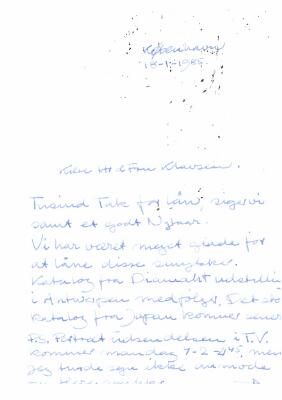 København
18-1-1985.
Kære Hr & Fru Klausen.
Tusind Tak for lån, siger vi
samt et godt Nytaar.
Vi har været meget glade for
at låne disse smykker.
Katalog fra Diamant udstillin
i Antwerpen medfølger. Det
Katalog fra Japan kommer
P.S. Portræt udsendelsen i T.V.
kommer mandag men
Jeg turde ikke